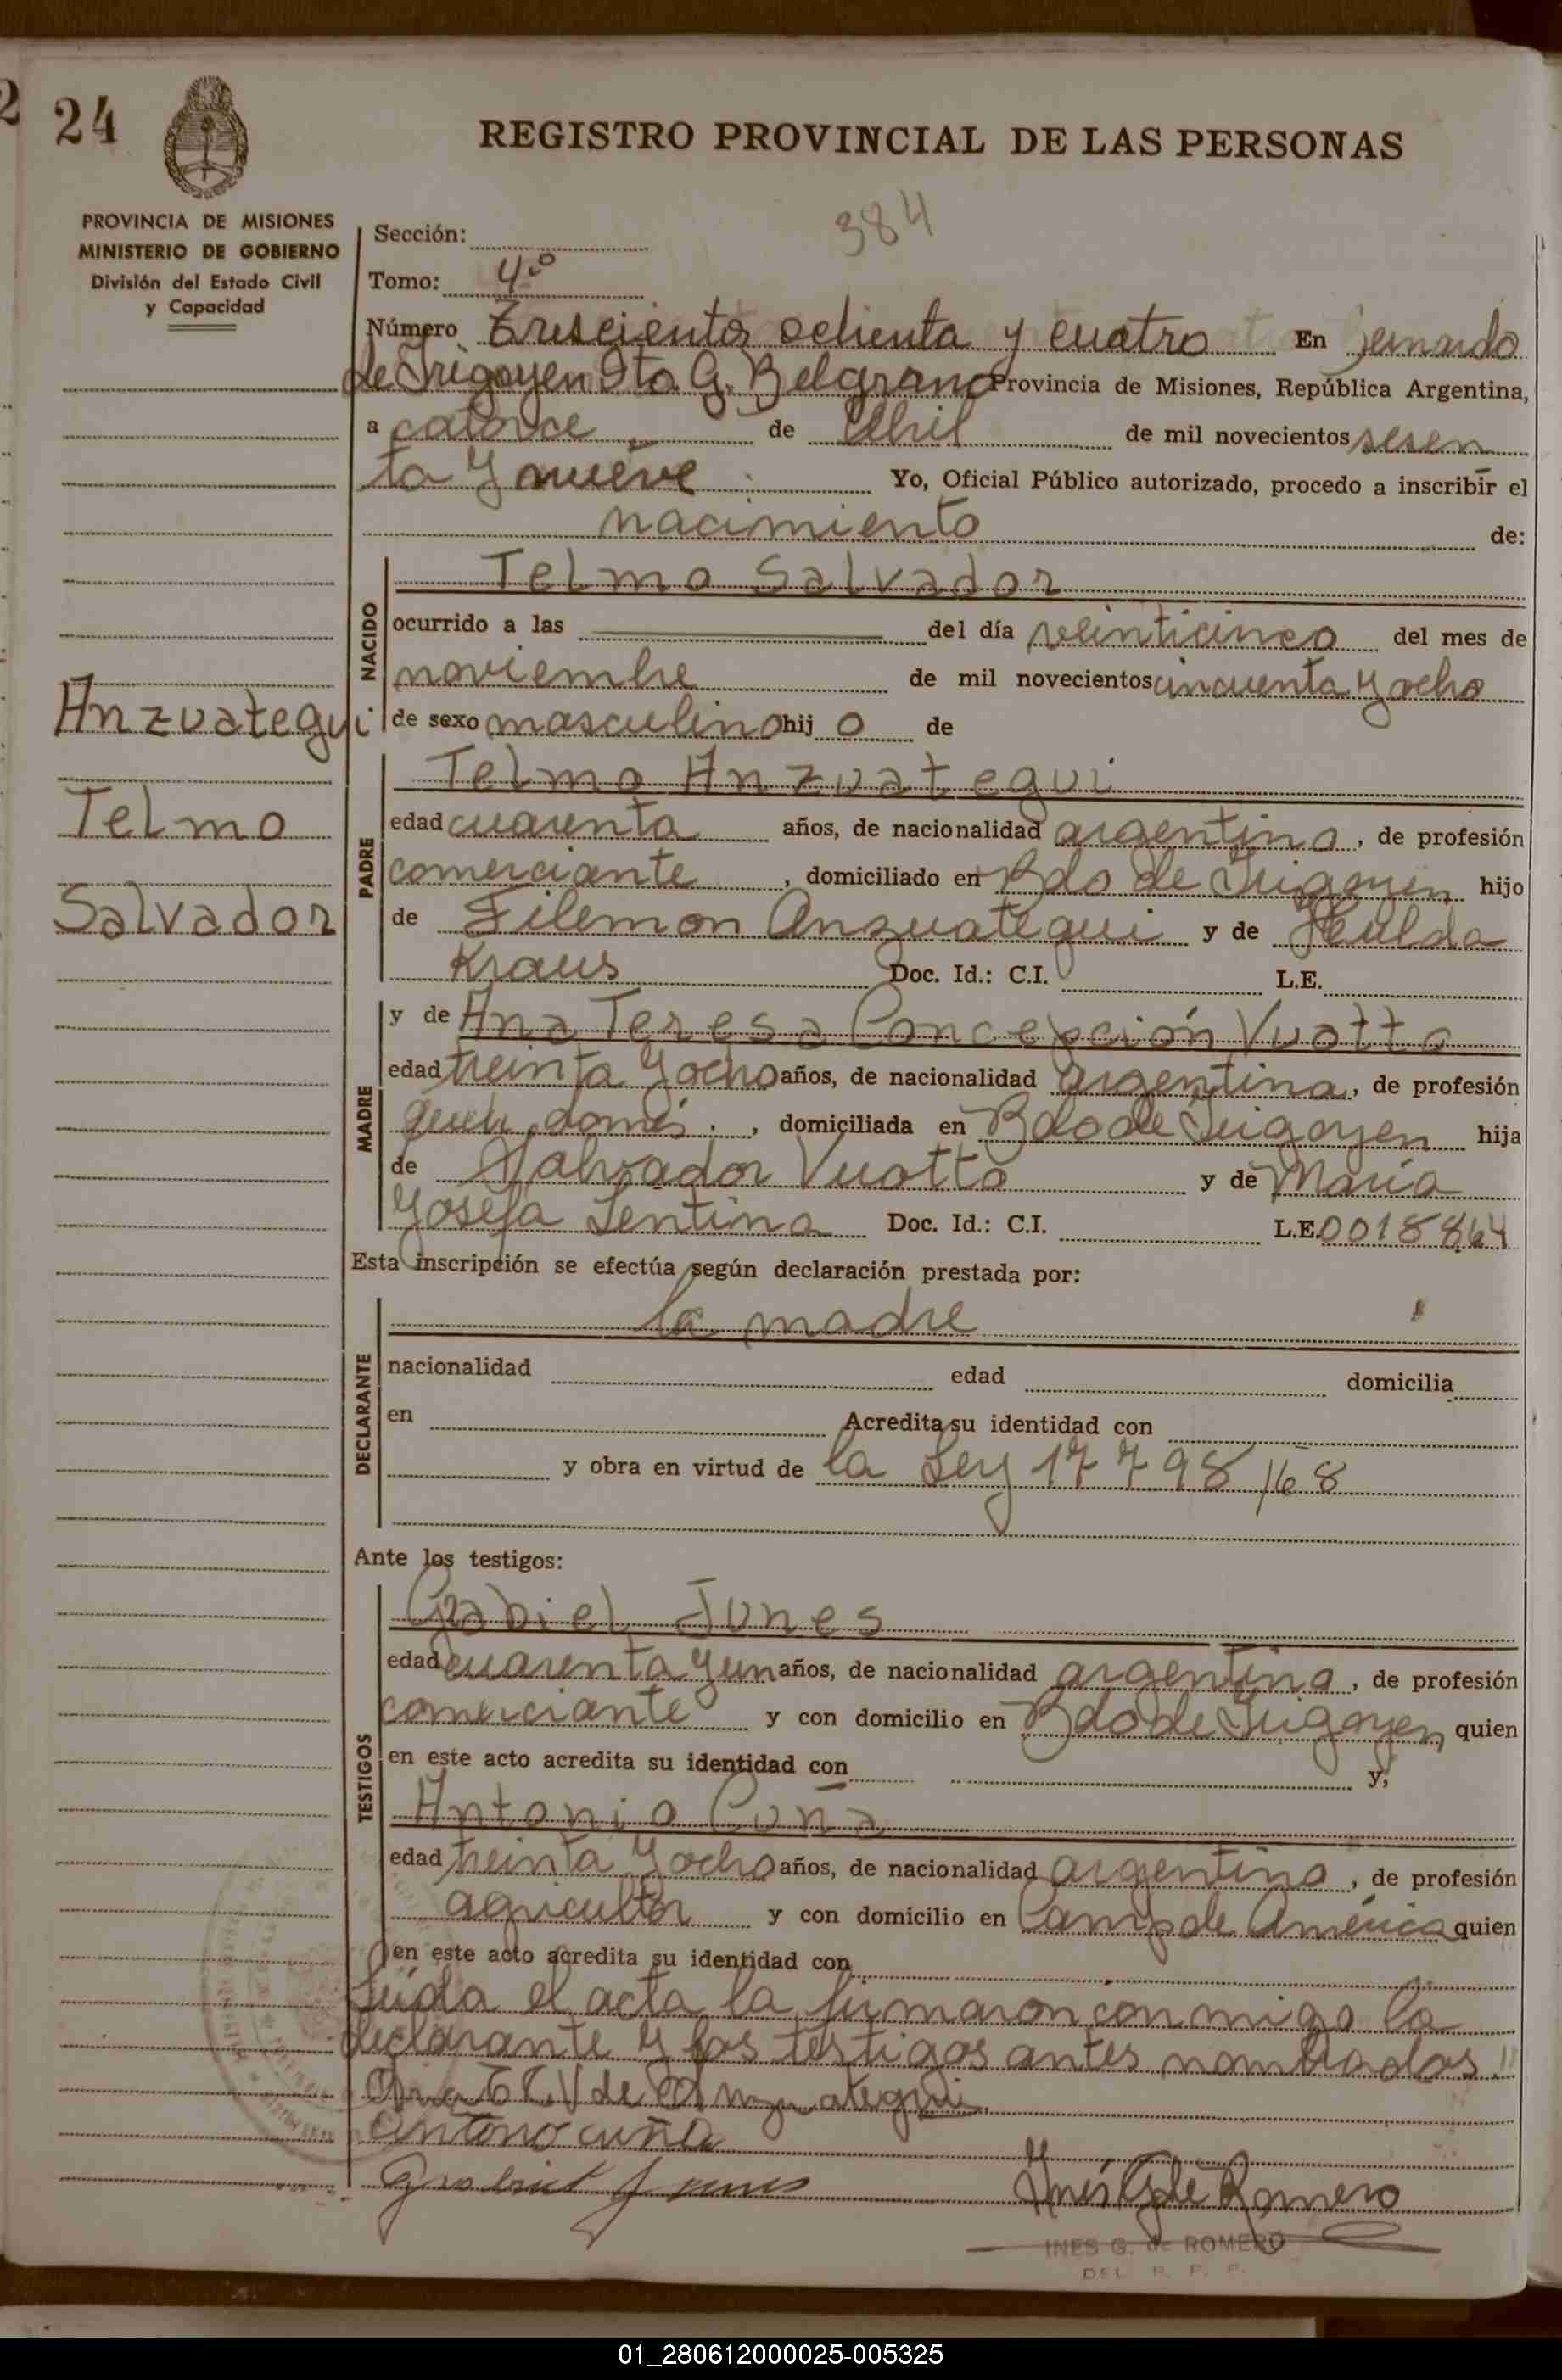 2 24
REGISTRO PROVINCIAL DE LAS PERSONAS
PROVINCIA DE MISIONES
MINISTERIO DE GOBIERNO
División del Estado Civil
y Capacidad
384
Sección:
Tomo: 4º
Número Trescientos ochenta y cuatro En Bernardo
de Irigoyen Dto G. Belgrano Provincia de Misiones, República Argentina,
a catorce de Abril de mil novecientos sesen
ta y nueve Yo, Oficial Público autorizado, procedo a inscribir el
nacimiento de:
NACIDO
Telmo Salvador
ocurrido a las del día veinticinco del mes de
noviembre de mil novecientos cincuenta y ocho
de sexo masculino hij o de
Anzuategui
Telmo
Salvador
PADRE
Telmo Anzuategui
edad cuarenta años, de nacionalidad argentino, de profesión
comerciante, domiciliado en Bdo de Irigoyen hijo
de Filemon Anzuategui y de Hulda
Kraus Doc. Id.: C.I. L.E.
MADRE
y de Ana Teresa Concepción Vuotto
edad treinta y ocho años, de nacionalidad argentina, de profesión
domés., domiciliada en Bdo de Irigoyen hija
de Salvador Vuotto y de María
Josefa Sentina Doc. Id.: C.I. L.E. 0018864
Esta inscripción se efectúa según declaración prestada por:
DECLARANTE
la madre
nacionalidad edad domicilia
en Acredita su identidad con
y obra en virtud de la Ley 17798/68
Ante los testigos:
TESTIGOS
Gabriel Junes
edad cuarenta y un años, de nacionalidad argentina, de profesión
comerciante y con domicilio en Bdo de Irigoyen quien
en este acto acredita su identidad con y,
Antonio Cuña
edad treinta y ocho años, de nacionalidad argentino, de profesión
agricultor y con domicilio en Camp de América quien
en este acto acredita su identidad con
Leída el acta la firmaron conmigo la
declarante y los testigos antes nombrados
Ana T C V de Anzuategui
Antonio cuña
Gabriel Junes
Inés G de Romero
INES G. de ROMERO
DEL. R. P. P.
01_280612000025-005325